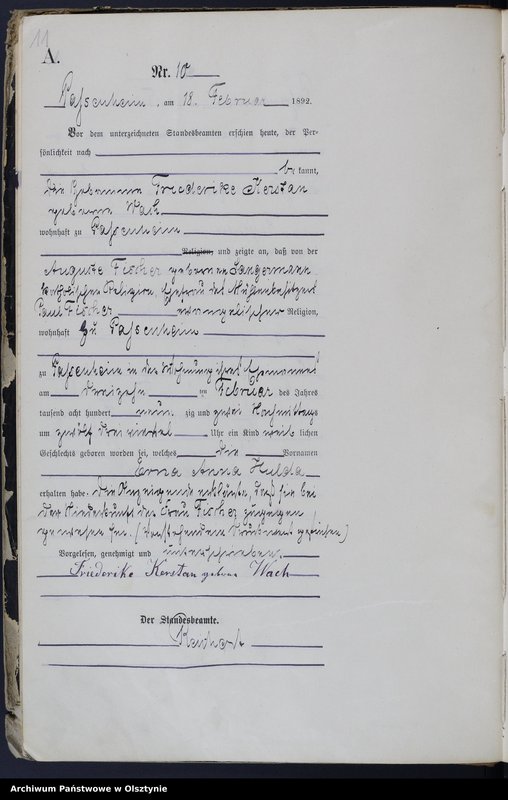 11
A.
Nr. 10
Passenheim, am 18. Februar 1892.
Vor dem unterzeichneten Standesbeamten erschien heute, der Per-
sönlichkeit nach
be kannt,
die Hebamme Friederike Kerstan
geborene Wach
wohnhaft zu Passenheim
Religion, und zeigte an, daß von der
Auguste Fischer geborenen Langermann
Religion, Ehefrau des Mühlenbesitzers
Paul Fischer evangelischer Religion,
wohnhaft zu Passenheim
zu Passenheim in der Wohnung ihres Ehemannes
am dreizehn ten Februar des Jahres
tausend acht hundert neun zig und zwei Nachmittags
um zwölf drei viertel Uhr ein Kind weib lichen
Geschlechts geboren worden sei, welches die Vornamen
Erna Anna Hulda
erhalten habe. Die Anzeigende erklärte, daß sie bei
der Niederkunft der Frau Fischer zugegen
gewesen sei. (Vorstehend ein Druckwort gestrichen)
Vorgelesen, genehmigt und unterschrieben.
Friederike Kerstan geborene Wach
Der Standesbeamte.
Archiwum Państwowe w Olsztynie